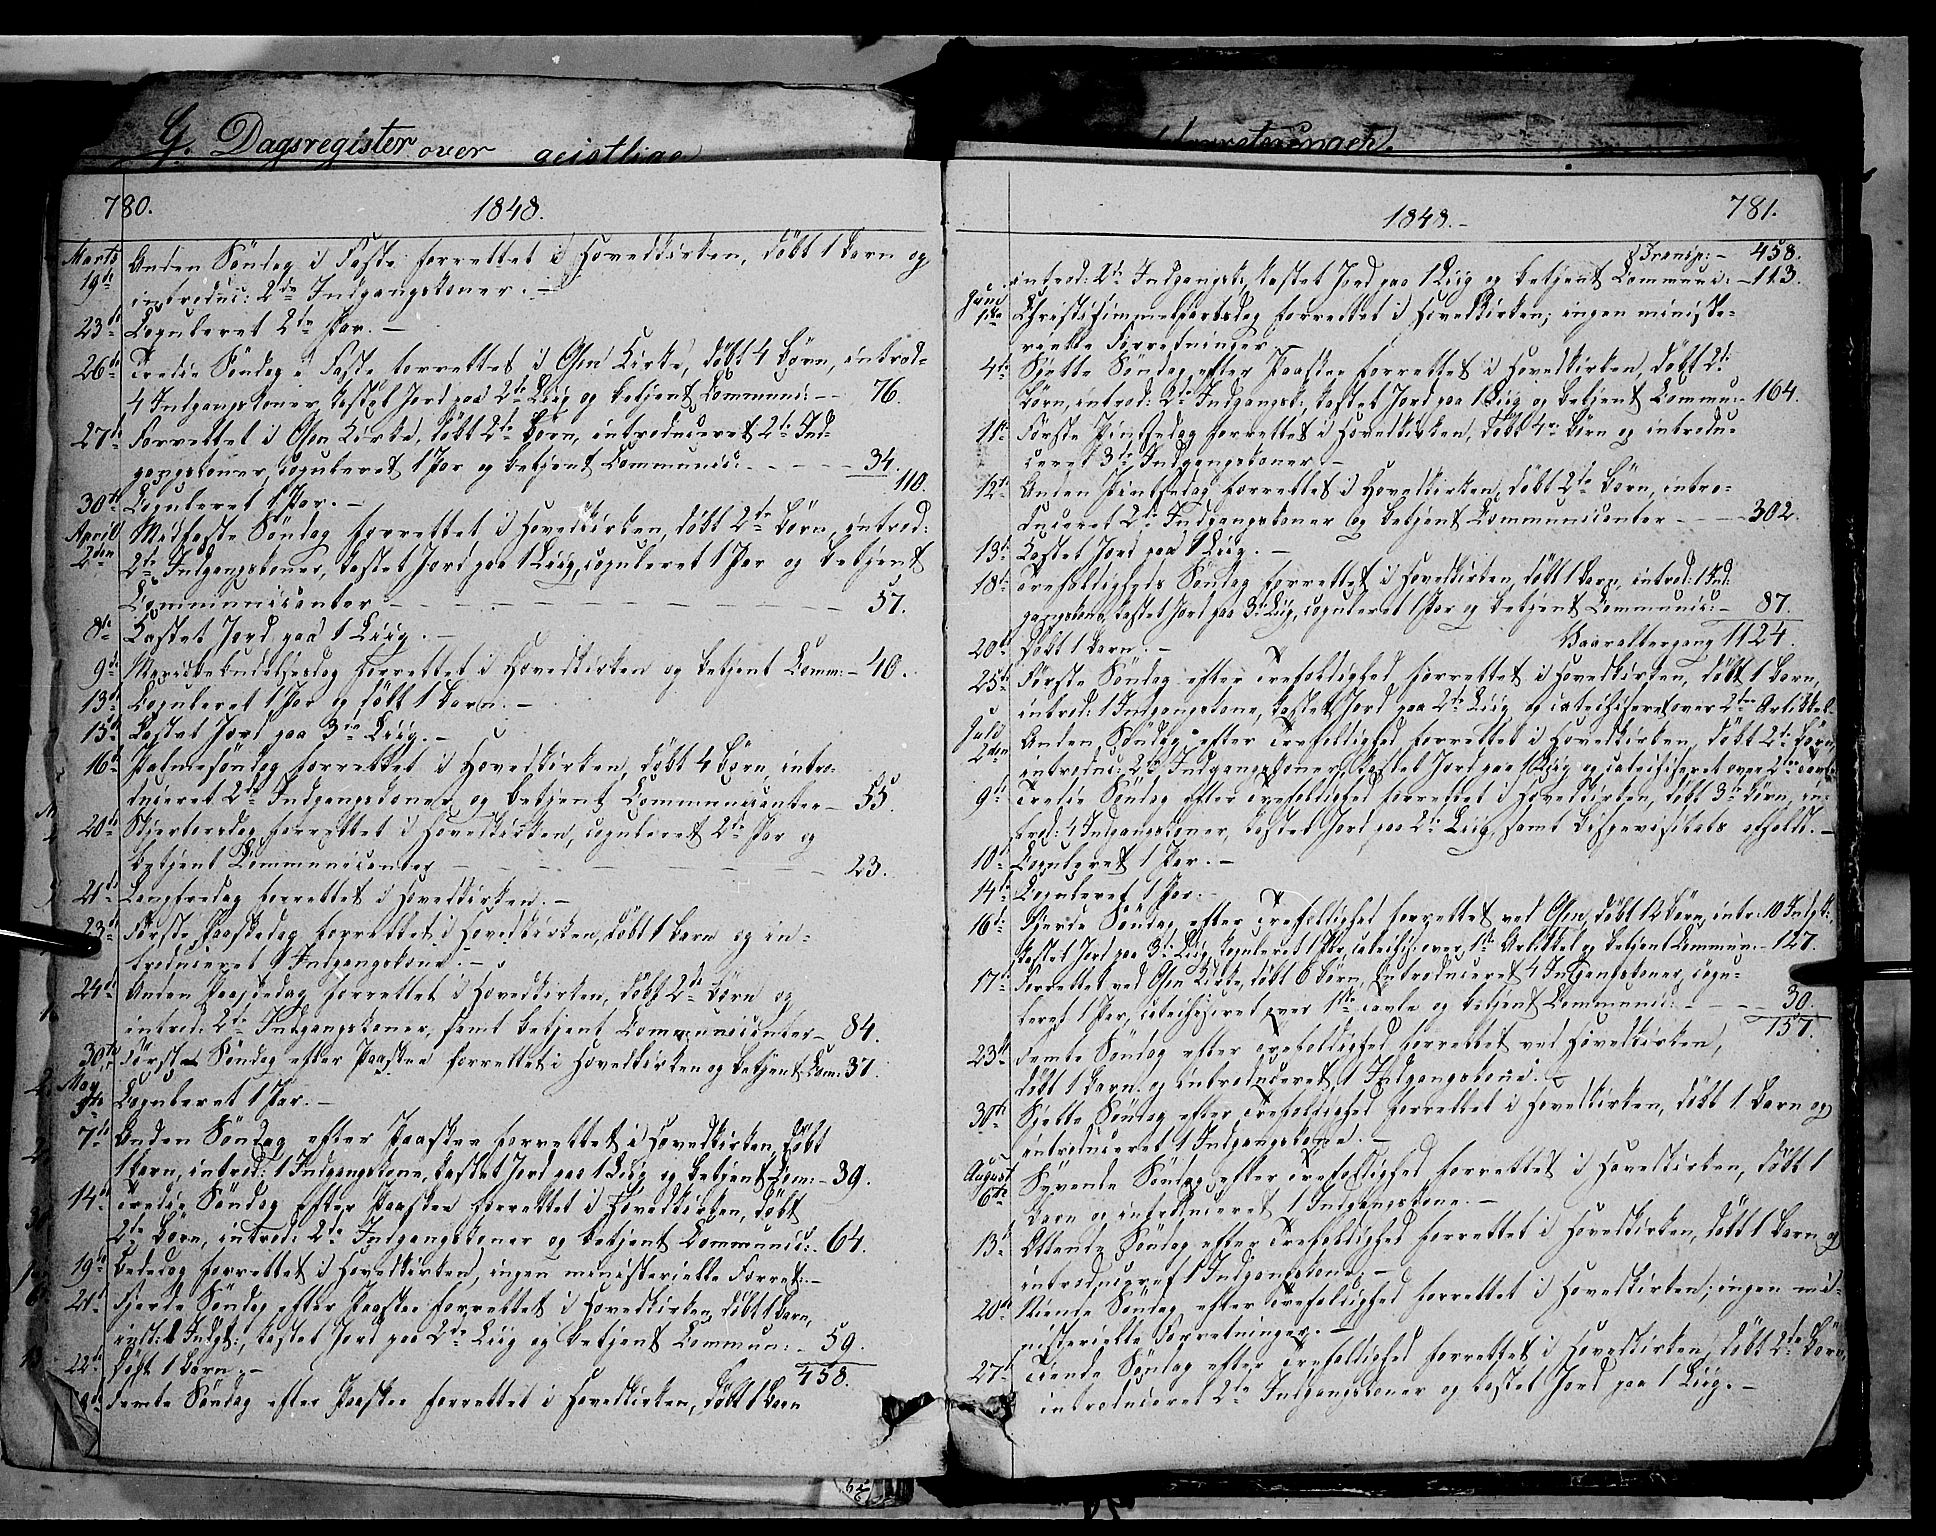 G. Dagsregister over geistlige
Forretninger.
780.
1848.
Marts 19de Anden Söndag i Faste forrettet i Hovedkirken, döbt 1 Barn og
introduc: 2de Indgangskoner. –
23de Copuleret 2de Par. –
26de Tredie Söndag i Faste forrettet i Osen Kirke, döbt 4 Börn, introd-
4 Indgangskoner, kastet Jord paa 2de Liig og betjent Communi: – – 76.
27de Forrettet i Osen Kirke, döbt 2de Börn, introduceret 2de Ind-
gangskoner, copuleret 1 Par og betjent Communic: – – – – – 34.
110.
30te Copuleret 1 Par. –
April 2den Midfaste Söndag forrettet i Hovedkirken, döbt 2de Börn, introd:
2de Indgangskoner, kastet Jord paa 1 Liig, copuleret 1 Par og betjent
Communicanter – – – – – – – – – – – 57.
8de Kastet Jord paa 1 Liig. –
9de Mariæ Bekndelsesdag forrettet i Hovedkirken og betjent Comm: – 40.
13de Copuleret 1 Par og döbt 1 Barn. –
15de Kastet Jord paa 3de Liig. –
16de Palmesöndag forrettet i Hovedkirken, döbt 4 Börn, intro-
duceret 2de Indgangskoner og betjent Communicanter – 55.
20de Skjertorsdag forrettet i Hovedkirken, copuleret 2de Par og
betjent Communicanter – – – – – – – – 23.
21de Langfredag forrettet i Hovedkirken. –
23de Förste Paaskedag forrettet i Hovedkirken, döbt 1 Barn og in-
troduceret 1 Indgangskone. –
24de Anden Paaskedag forrettet i Hovedkirken, döbt 2de Börn og
introd: 2de Indgangskoner, samt betjent Communicanter – 84.
30te Förste Söndag efter Paaske forrettet i Hovedkirken og betjent Com: 37.
May Copuleret 1 Par. –
7de Anden Söndag efter Paaske forrettet i Hovedkirken, döbt
1 Barn, introd: 1 Indgangskone, kastet Jord paa 1 Liig og betjent Com: – 39.
14de Tredie Söndag efter Paaske forrettet i Hovedkirken, döbt
2de Börn, introd: 2de Indgangskoner og betjent Communic: – 64.
19de Bededag forrettet i Hovedkirken, ingen ministerielle Forret: –
21de Fjerde Söndag efter Paaske forrettet i Hovedkirken, döbt 1 Barn,
int: 1 Indgk:, kastet Jord paa 2de Liig og betjent Commun: – 59.
22de Döbt 1 Barn. –
458.
Femte Söndag efter Paaske forrettet i Hovedkirken, döbt 1 Barn
781.
1848. –
Transp: – 458.
introd: 2de Indgangsk:, kastet Jord paa 1 Liig og betjent Communi: – 113.
Juni 1ste Christi himmelfartsdag forrettet i Hovedkirken; ingen ministe-
rielle Forretninger. –
4de Sjette Söndag efter Paaske forrettet i Hovedkirken, döbt 2de
Börn, introd: 2de Indgangsk:, kastet Jord paa 1 Liig og betjent Commu: – 164.
11te Förste Pintsedag forrettet i Hovedkirken, döbt 4re Börn og introdu-
ceret 3de Indgangskoner. –
12te Anden Pintsedag forrettet i Hovedkirken, döbt 2de Börn, intro-
duceret 2de Indgangskoner og betjent Communicanter – – – 302.
13de Kastet Jord paa 1 Liig. –
18de Trefoldigheds Söndag forrettet i Hovedkirken, döbt 1 Barn, introd: 1 Ind-
gangskone, kastet Jord paa 3de Liig, copuleret 1 Par og betjent Communic: – 87.
20de Döbt 1 Barn. –
Vaaraltergang 1124.
25de Förste Söndag efter Trefoldighed forrettet i Hovedkirken, döbt 1 Barn,
introd: 1 Indgangskone, kastet Jord paa 2de Liig og catechiseret over 2den Artikkel.
Juli 2den Anden Söndag efter Trefoldighed forrettet i Hovedkirken, döbt 2de Börn,
introduc: 2de Indgangskoner, kastet Jord paa 1 Liig og catechiseret over 2den Tavle
9de Tredie Söndag efter Trefoldighed forrettet i Hovedkirken, döbt 3de Börn, in-
trod: 4 Indgangskoner, kastet Jord paa 2de Liig, samt Bispevisitats afholdt. –
10de Copuleret 1 Par. –
14de Copuleret 1 Par. –
16de Fjerde Söndag efter Trefoldighed forrettet ved Osen, döbt 12 Börn, intr: 10 Indgk:
kastet Jord paa 3de Liig, copuleret 1 Par, catechis: over 1ste Artikkel og betjent Commun: – 127.
17de Forrettet ved Osen Kirke, döbt 6 Börn, introduceret 4 Indgangskoner, copu-
leret 1 Par, catechiseret over 1ste Tavle og betjent Communic: – – – – 30.
157.
23de Femte Söndag efter Trefoldighed forrettet ved Hovedkirken,
döbt 1 Barn og introduceret 1 Indgangskone. –
30te Sjette Söndag efter Trefoldighed forrettet i Hovedkirken, döbt 1 Barn og
introduceret 1 Indgangskone. –
August 6te Syvende Söndag efter Trefoldighed forrettet i Hovedkirken, döbt 1
Barn og introduceret 1 Indgangskone. –
13de Ottende Söndag efter Trefoldighed forrettet i Hovedkirken, döbt 1 Barn og
introduceret 1 Indgangskone. –
20de Niende Söndag efter Trefoldighed forrettet i Hovedkirken; ingen mi-
nisterielle Forretninger. –
27de Tiende Söndag efter Trefoldighed forrettet i Hovedkirken, döbt 2de Börn,
introduceret 2de Indgangskoner og kastet Jord paa 1 Liig. –